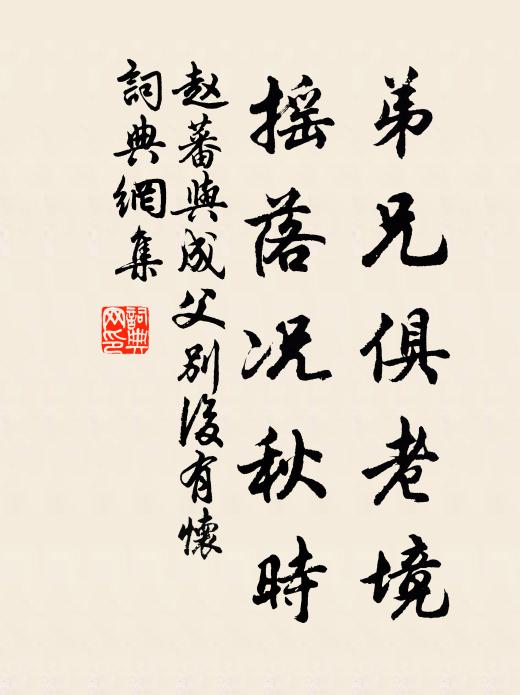 弟兄俱老境
摇落况秋时
赵蕃與成父别後有懷
詞典網集
詞典网印